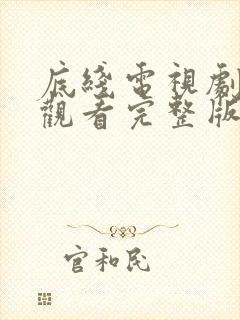 底綫電視劇
觀看完整版
官和民